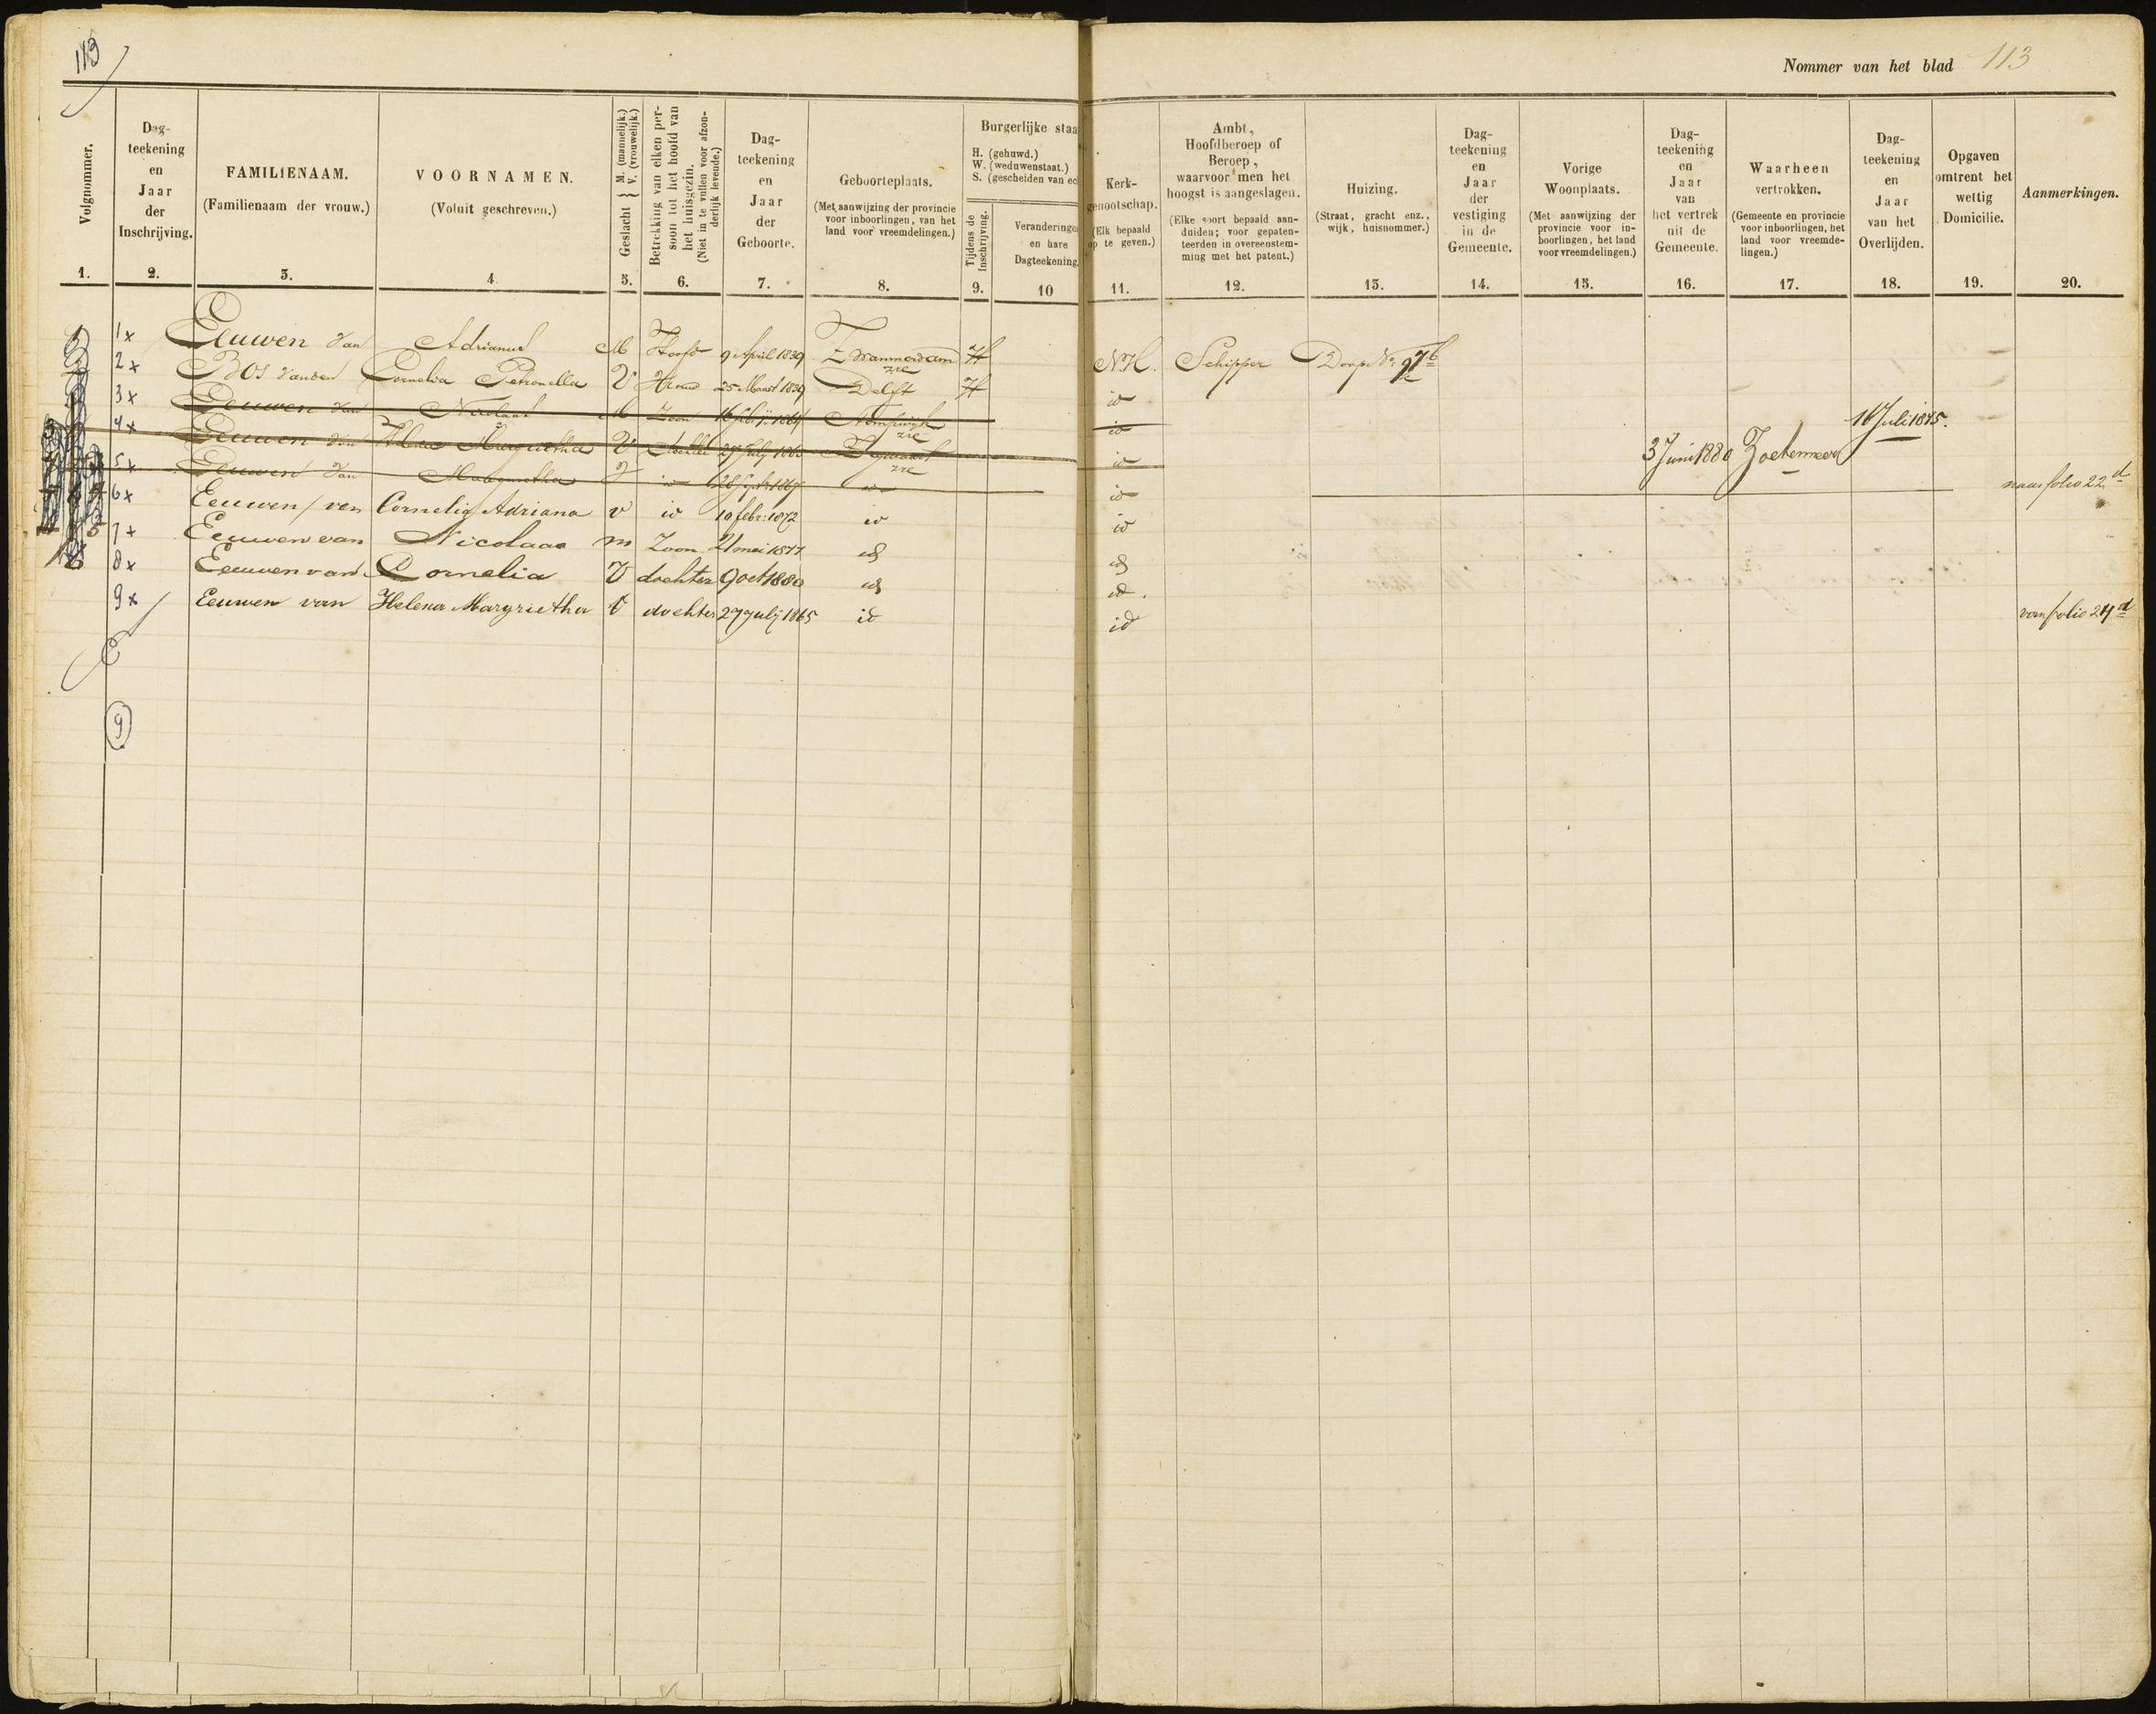 113
Nommer van het blad 113
Volgnommer.
1.
Dag-
teekening
en
Jaar
der
Inschrijving.
2.
FAMILIENAAM.
(Familienaam der vrouw.)
3.
VOORNAMEN.
(Voluit geschreven.)
4.
Geslacht } M. (mannelijk.) V. (vrouwelijk.)
5.
Betrekking van elken per-
soon tot het hoofd van
het huisgezin.
(Niet in te vullen voor afzon-
derlijk levende.)
6.
Dag-
teekening
en
Jaar
der
Geboorte.
7.
Geboorteplaats.
(Met aanwijzing der provincie
voor inboorlingen, van het
land voor vreemdelingen.)
8.
Burgerlijke staa
H. (gehuwd.)
W. (weduwenstaat.)
S. (gescheiden van ec
Tijdens de
Inschrijving.
9.
Veranderinge
en hare
Dagteekening.
10
Kerk-
genootschap.
(Elk bepaald
op te geven.)
11.
Ambt,
Hoofdberoep of
Beroep,
waarvoor men het
hoogst is aangeslagen.
(Elke soort bepaald aan-
duiden; voor gepaten-
teerden in overeenstem-
ming met het patent.)
12.
Huizing.
(Straat, gracht enz.,
wijk, huisnommer.)
13.
Dag-
teekening
en
Jaar
der
vestiging
in de
Gemeente.
14.
Vorige
Woonplaats.
(Met aanwijzing der
provincie voor in-
boorlingen, het land
voor vreemdelingen.)
15.
Dag-
teekening
en
Jaar
van
het vertrek
uit de
Gemeente.
16.
Waarheen
vertrokken.
(Gemeente en provincie
voor inboorlingen, het
land voor vreemde-
lingen.)
17.
Dag-
teekening
en
Jaar
van het
Overlijden.
18.
Opgaven
omtrent het
wettig
Domicilie.
19.
Aanmerkingen.
20.
1x Eeuwen van Adrianus M Hoofd 9 April 1839 Zwammerdam H N.H. Schipper Dorp No. 97b
2x Bos van den Cornelia Petronella V Vrouw 25 Maart 1839 Delft H id
3x Eeuwen van Nicolaas M Zoon 1864 id 16 Juli 1875.
4x Eeuwen van Helena Margrietha V dochter 27 July 1865 Zegwaart id 3 Juni 1880 Zoetermeer
5x Eeuwen van Margaretha V id id id naar folio 22d
6x Eeuwen / van Cornelia Adriana v id 10 febr: 1872 id id
7x Eeuwen van Nicolaas m Zoon 21 mei 1877 id id
8x Eeuwen van Cornelia V dochter 9 oct 1880 id id.
9x Eeuwen van Helena Margrietha V dochter 27 July 1865 id id van folio 24d
9